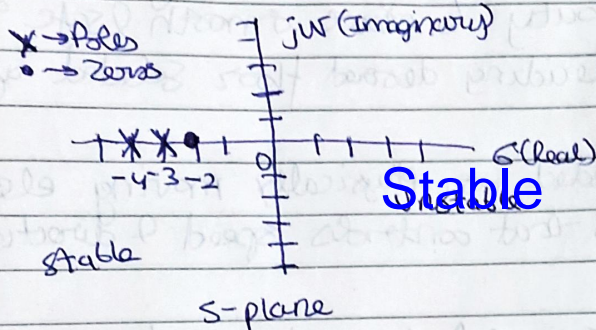 x → Poles
• → Zeros
jw (Imaginary)
σ (Real)
-4 -3 -2
0
Stable
Unstable
Stable
S-plane